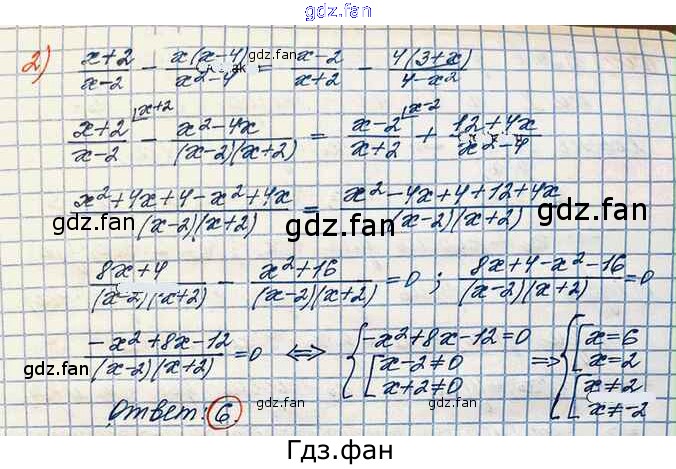 gdz.fan
2) (x+2)/(x-2) - x(x-4)/(x²-4) = (x-2)/(x+2) - 4(3+x)/(4-x²)
gdz.fan
gdz.fan
(x+2)/(x-2) ⌊x+2 - (x²-4x)/((x-2)(x+2)) = (x-2)/(x+2) ⌊x-2 + (12+4x)/(x²-4)
(x²+4x+4-x²+4x)/((x-2)(x+2)) = (x²-4x+4+12+4x)/((x-2)(x+2))
gdz.fan gdz.fan gdz.fan
(8x+4)/((x-2)(x+2)) - (x²+16)/((x-2)(x+2)) = 0 ; (8x+4-x²-16)/((x-2)(x+2)) = 0
(-x²+8x-12)/((x-2)(x+2)) = 0 ⟺ { -x²+8x-12=0 [ x-2≠0 x+2≠0 ⟹ { [ x=6 x=2 [ x≠2 x≠-2
gdz.fan gdz.fan gdz.fan
Ответ: 6.
gdz.fan gdz.fan
Гдз.фан